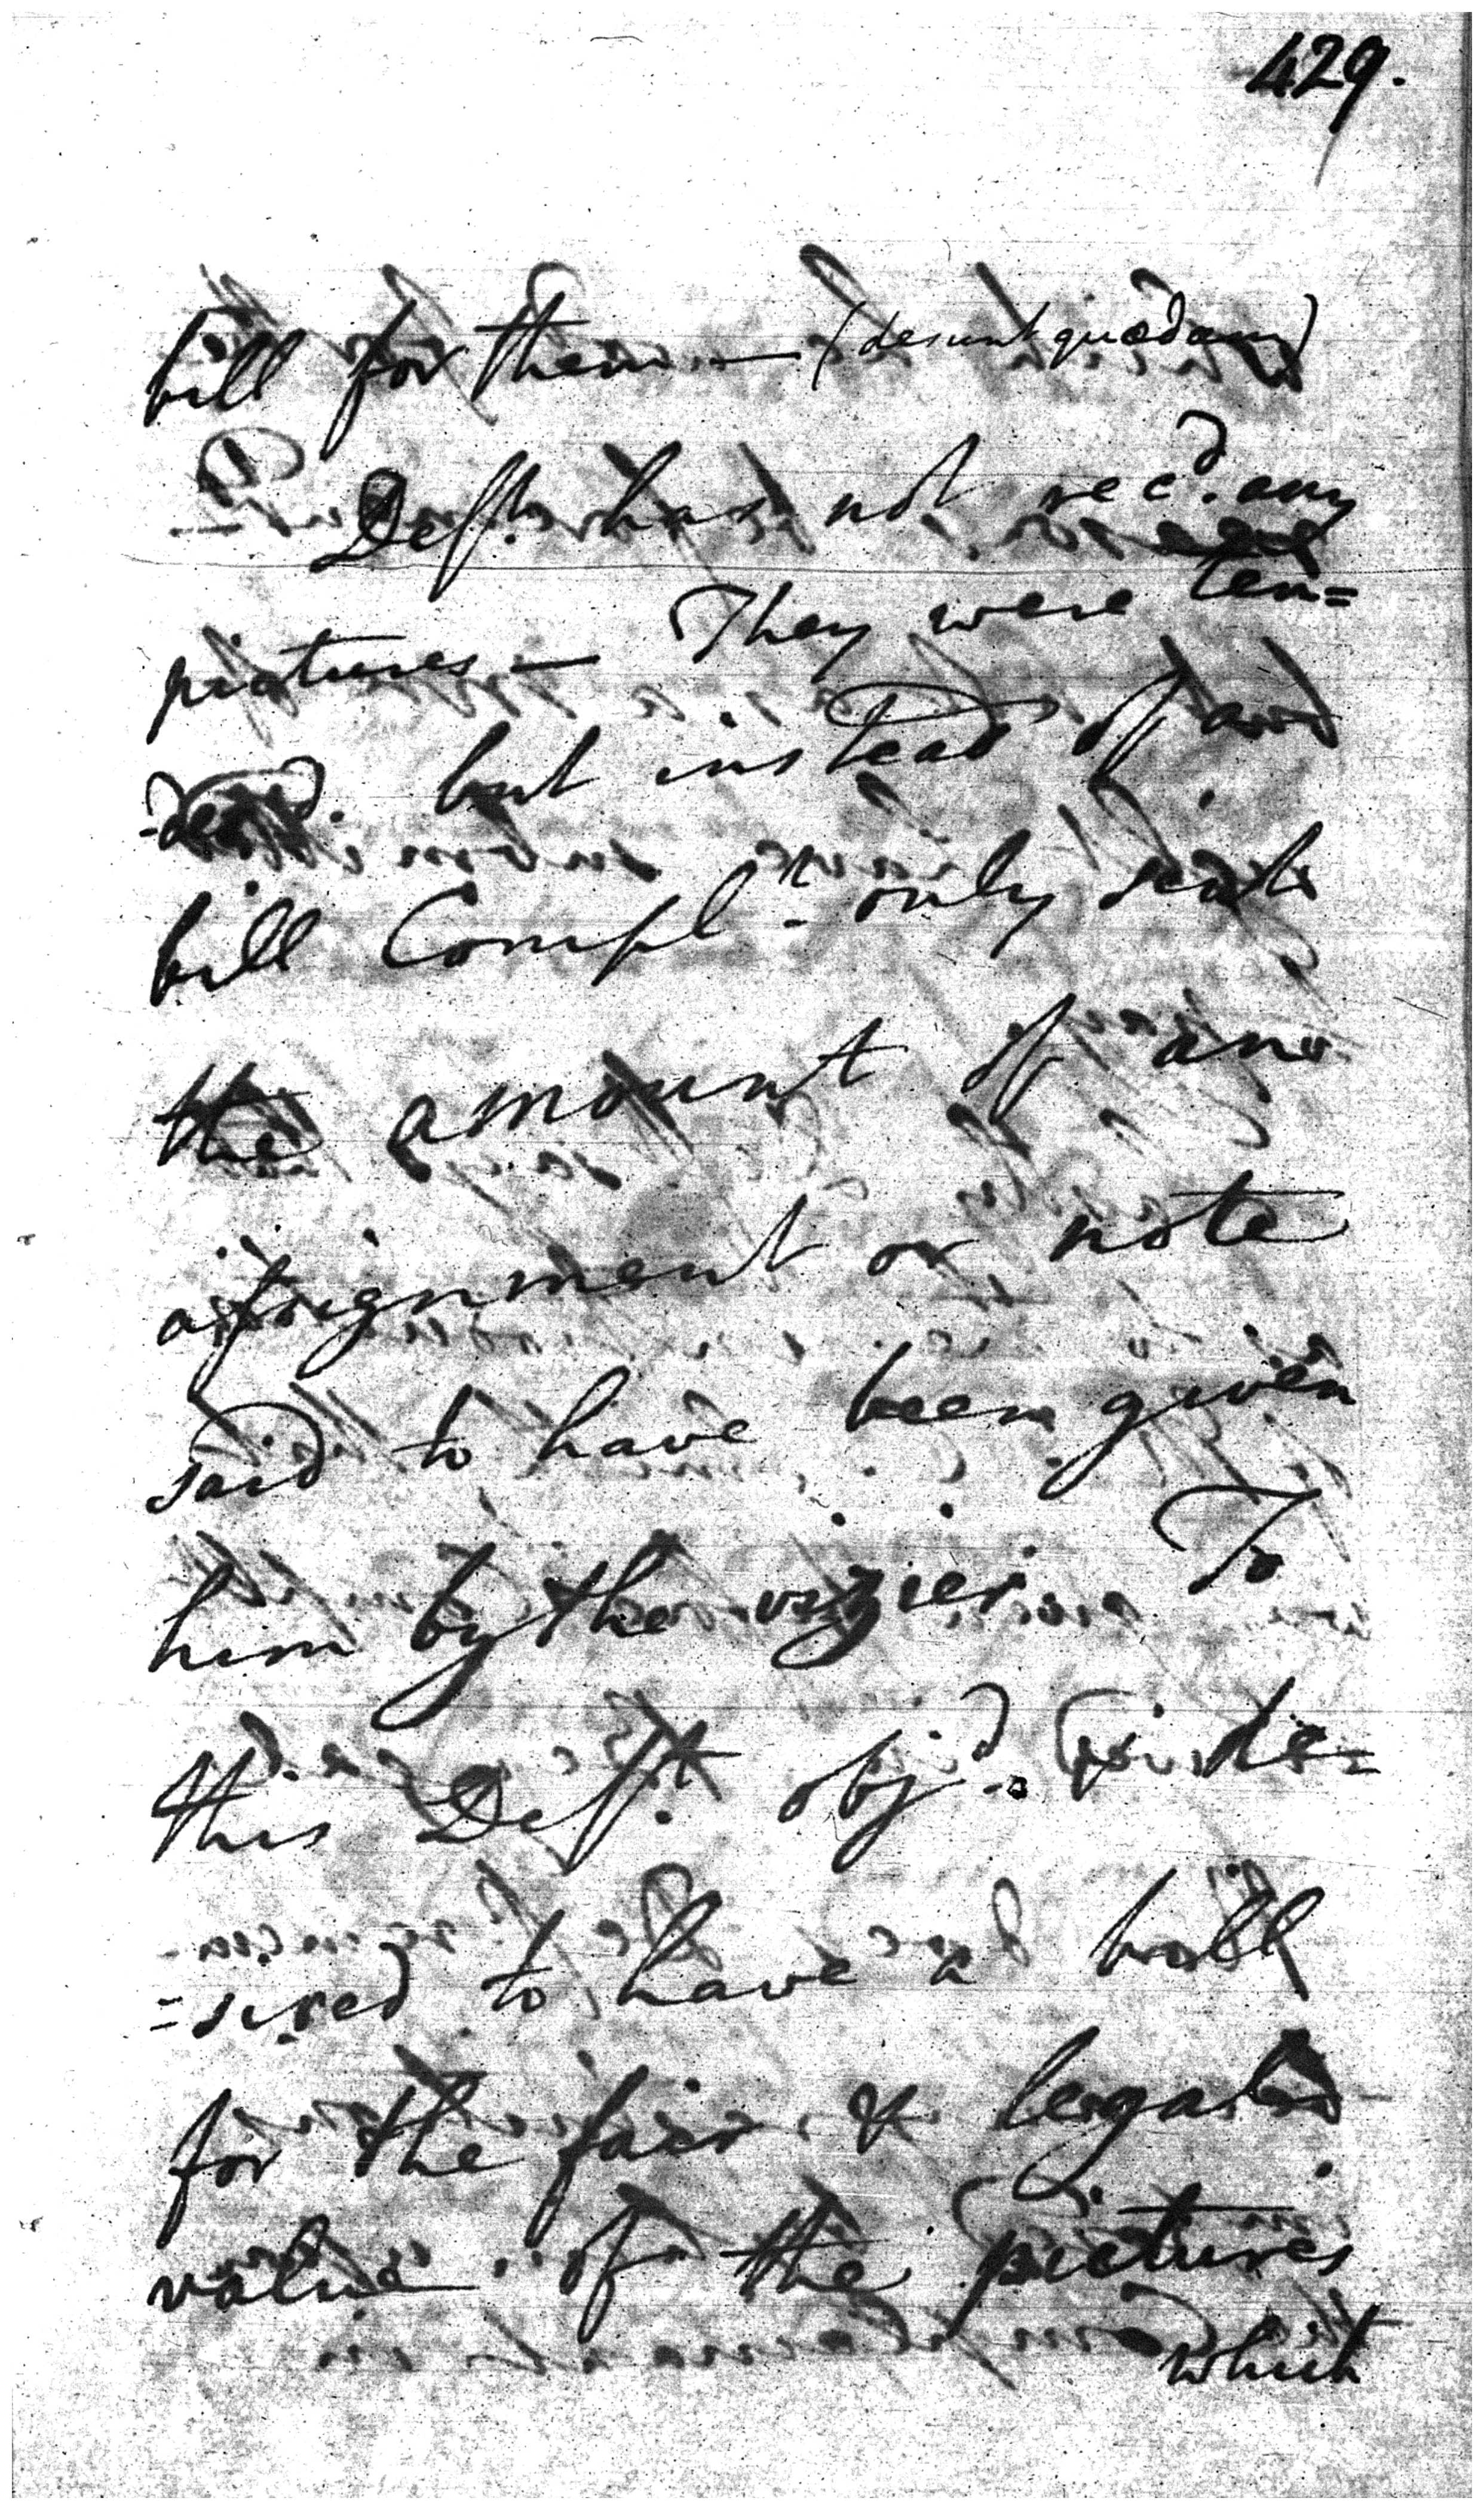 429.
bill for them — (desunt quædam)
Deft. has not rec.d any
pictures — They were ten=
-dered. but instead of a
bill Compl.t only sent
the amount of an
assignment or note
said to have been given
him by the vizier. To
this Def.t obj.d & de=
=sired to have a bill
for the fair & legal
value of the pictures
which